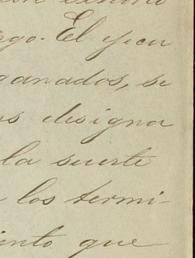 rgo. El ejecu
ganados, se
s designa
la suerte
los termi-
iento que